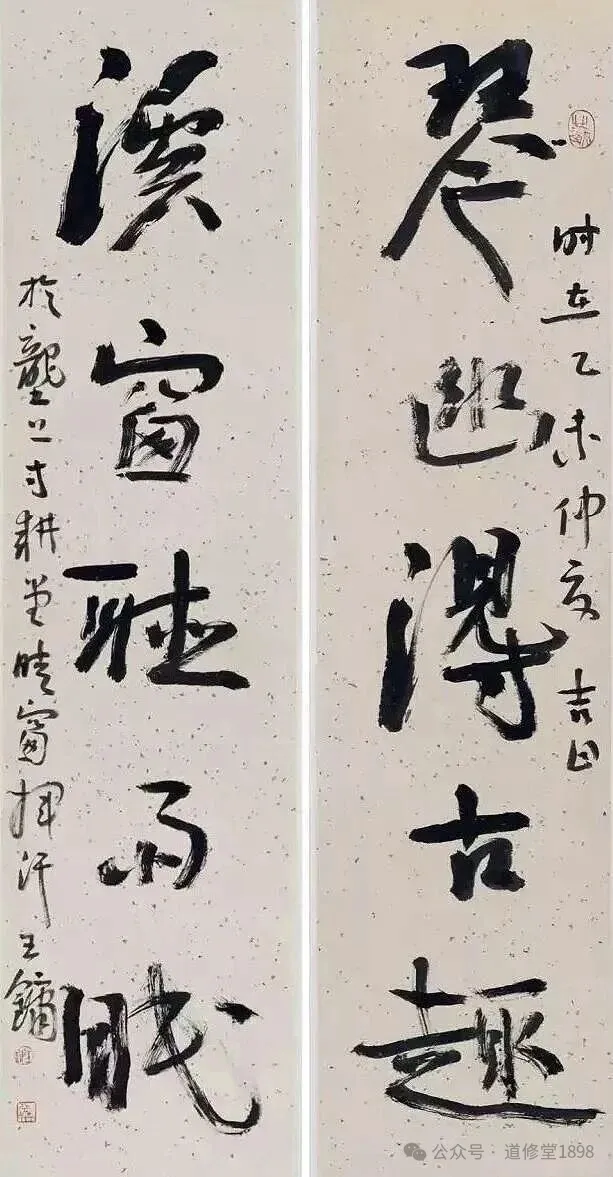 琴幽得古趣
时在乙未仲夏吉日
溪窗聽雨眠
於壟上寸耕堂晴窗揮汗王鏞
公众号·道修堂1898